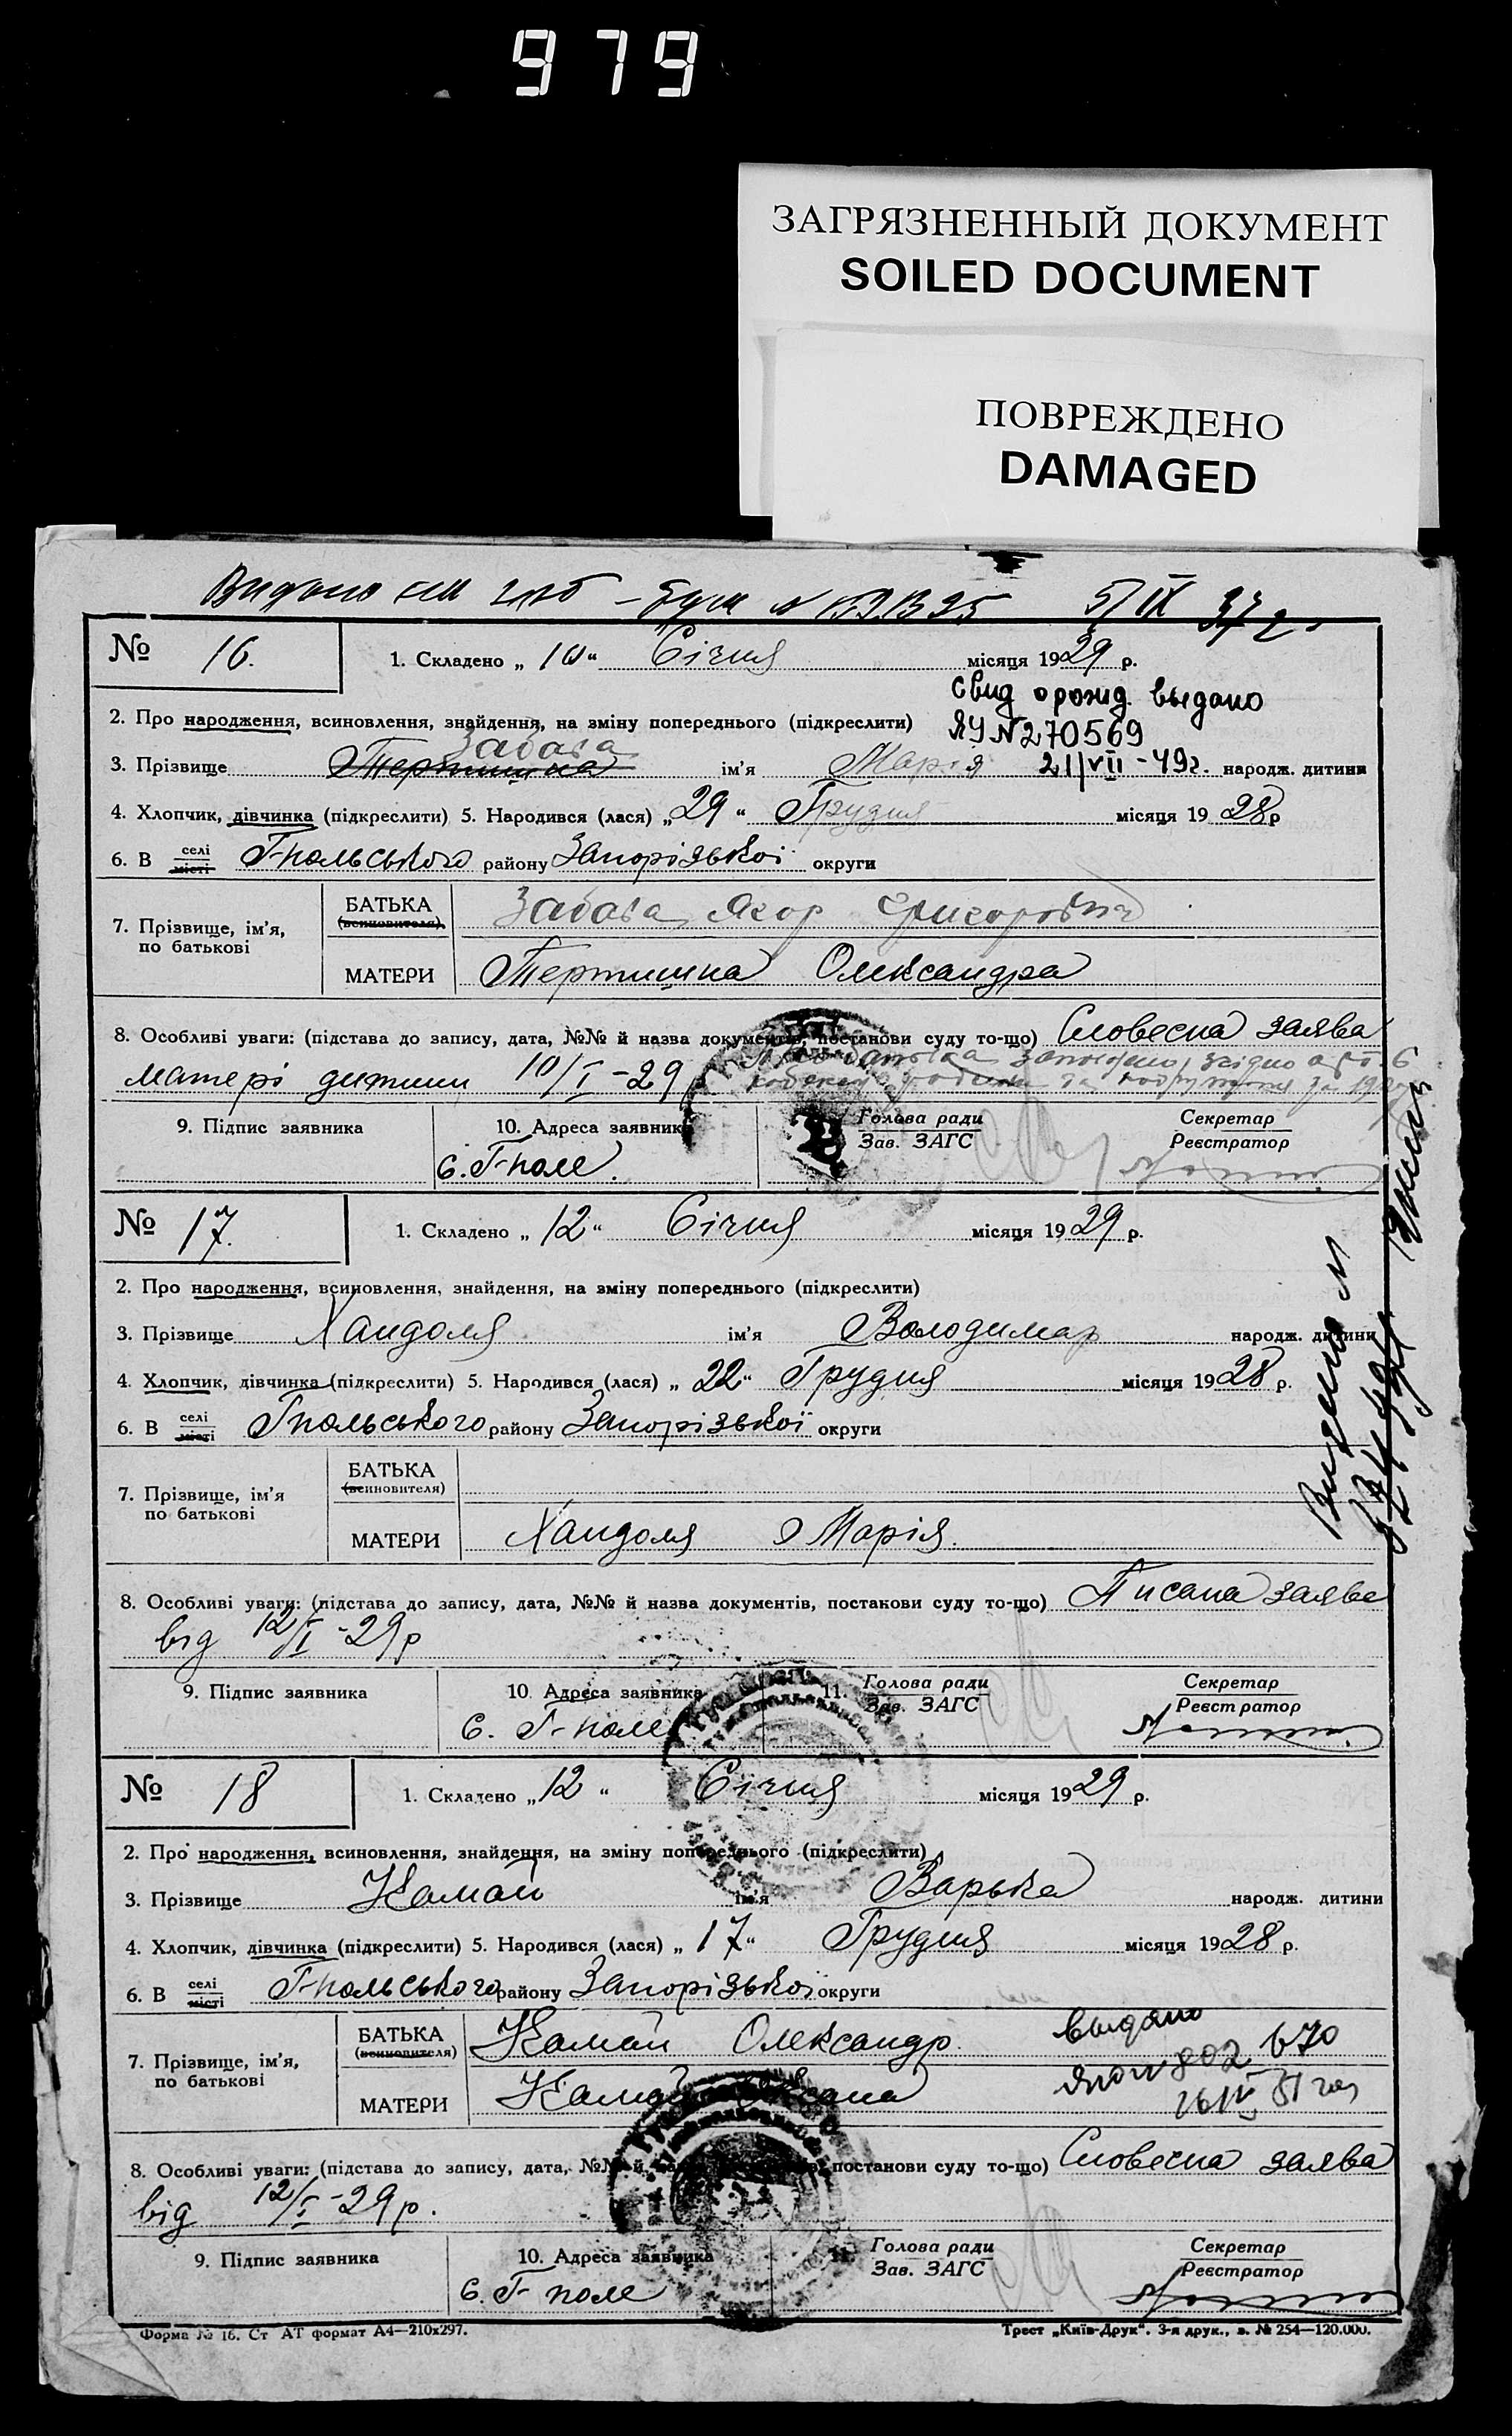 979
ЗАГРЯЗНЕННЫЙ ДОКУМЕНТ
SOILED DOCUMENT
ПОВРЕЖДЕНО
DAMAGED
5/IX 37 г.
№ 16. 1. Складено „ 10 “ Січня місяця 1929 р.
свид о рожд. выдано
2. Про народження, всиновлення, знайдення, на зміну попереднього (підкреслити)
ЯУ № 270569
Забава
3. Прізвище Тертишна ім'я Марія 21/VII-49г. народж. дитини
4. Хлопчик, дівчинка (підкреслити) 5. Народився (лася) „ 29 “ Грудня місяця 19 28 р
6. В селі місті Г-польського району Запорізької округи
7. Прізвище, ім'я, по батькові
БАТЬКА (всиновителя) Забава Ягор Григорович
МАТЕРИ Тертишна Олександра
8. Особливі уваги: (підстава до запису, дата, №№ й назва документів, постанови суду то-що) Словесна заява
матері дитини 10/I-29 р
9. Підпис заявника 10. Адреса заявника Голова ради Зав. ЗАГС Секретар Реєстратор
с. Г-поле.
№ 17. 1. Складено „ 12 “ Січня місяця 1929 р.
2. Про народження, всиновлення, знайдення, на зміну попереднього (підкреслити)
3. Прізвище Хандоля ім'я Володимар народж. дитини
4. Хлопчик, дівчинка (підкреслити) 5. Народився (лася) „ 22 “ Грудня місяця 1928 р.
6. В селі місті Гпольського району Запорізької округи
7. Прізвище, ім'я по батькові
БАТЬКА (всиновителя)
МАТЕРИ Хандоля Марія.
8. Особливі уваги: (підстава до запису, дата, №№ й назва документів, постакови суду то-що) Писана заява
від 12/I-29 р
9. Підпис заявника 10. Адреса заявника 11. Голова ради Зав. ЗАГС Секретар Реєстратор
с. Г-поле
№ 18 1. Складено „ 12 “ Січня місяця 1929 р.
2. Про народження, всиновлення, знайдення, на зміну попереднього (підкреслити)
3. Прізвище Камай ім'я Варька народж. дитини
4. Хлопчик, дівчинка (підкреслити) 5. Народився (лася) „ 17 “ Грудня місяця 1928 р.
6. В селі місті Г-польського району Запорізької округи
7. Прізвище, ім'я, по батькові
БАТЬКА (всиновителя) Камай Олександр
выдано
МАТЕРИ Камай
802 670
8. Особливі уваги: (підстава до запису, дата, №№ й постанови суду то-що) Словесна заява
від 12/I-29 р.
9. Підпис заявника 10. Адреса заявника 11. Голова ради Зав. ЗАГС Секретар Реєстратор
с. Г-поле
Форма № 16. Ст АТ формат А4—210х297. Трест „Київ-Друк“. 3-я друк., з. № 254—120.000.